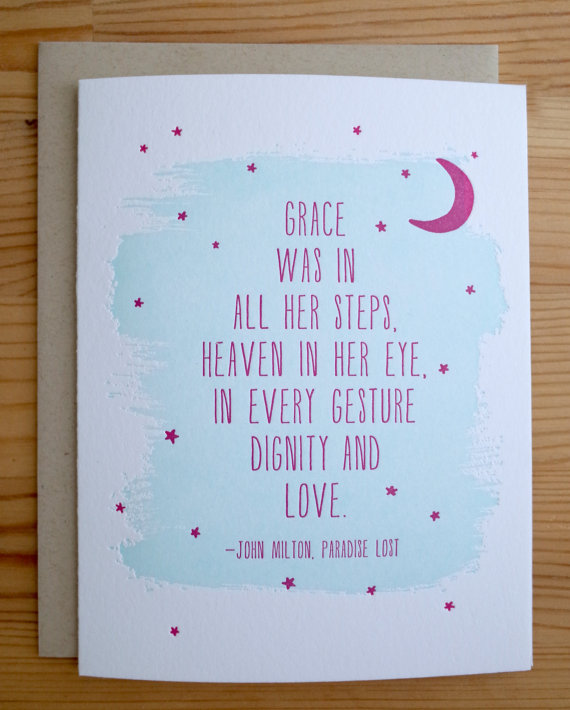 GRACE
WAS IN
ALL HER STEPS,
HEAVEN IN HER EYE,
IN EVERY GESTURE
DIGNITY AND
LOVE.
–JOHN MILTON, PARADISE LOST